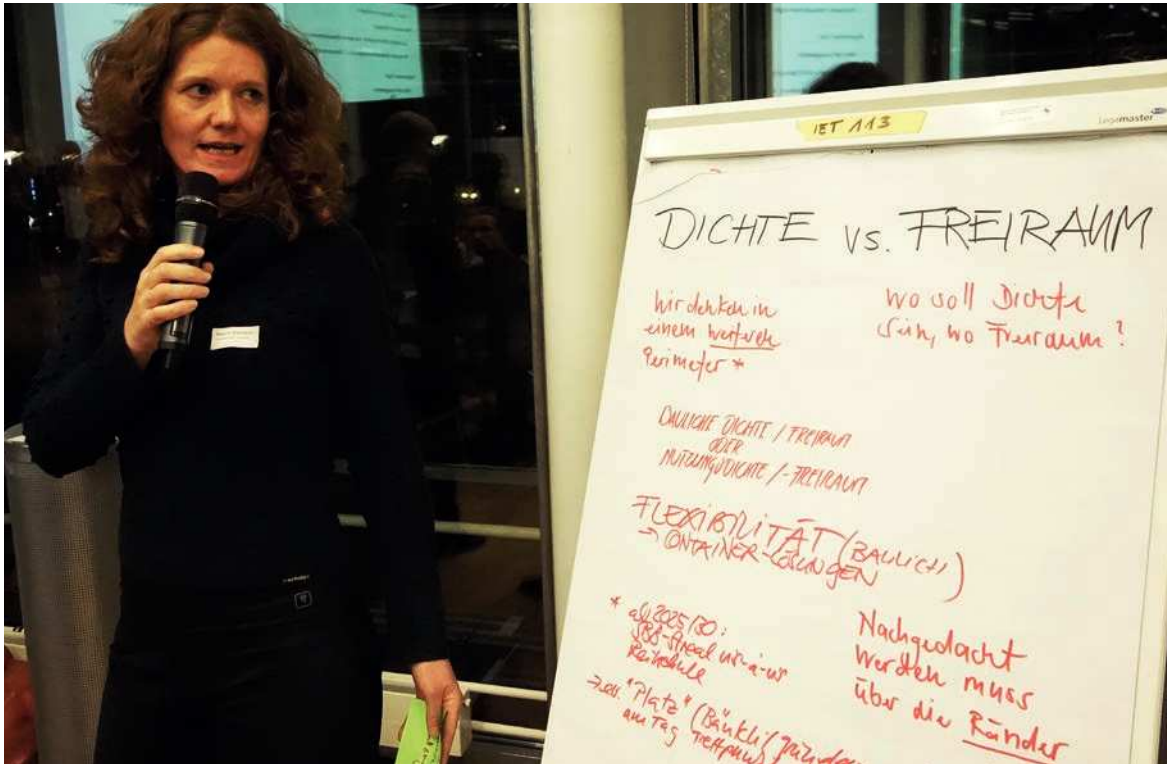 IET 113
Legamaster
DICHTE vs. FREIRAUM
wir denken in
einem weiteren
Perimeter *
wo soll Dichte
sein, wo Freiraum?
BAULICHE DICHTE / FREIRAUM
ODER
NUTZUNGSDICHTE /-FREIRAUM
FLEXIBILITÄT (BAULICH)
→ CONTAINER-LÖSUNGEN
* ab 2025/30:
SBB-Areal vis-à-vis
→ ev. "Platz" (Bänkli,
am Tag Treffpunkt
Nachgedacht
werden muss
über die Ränder